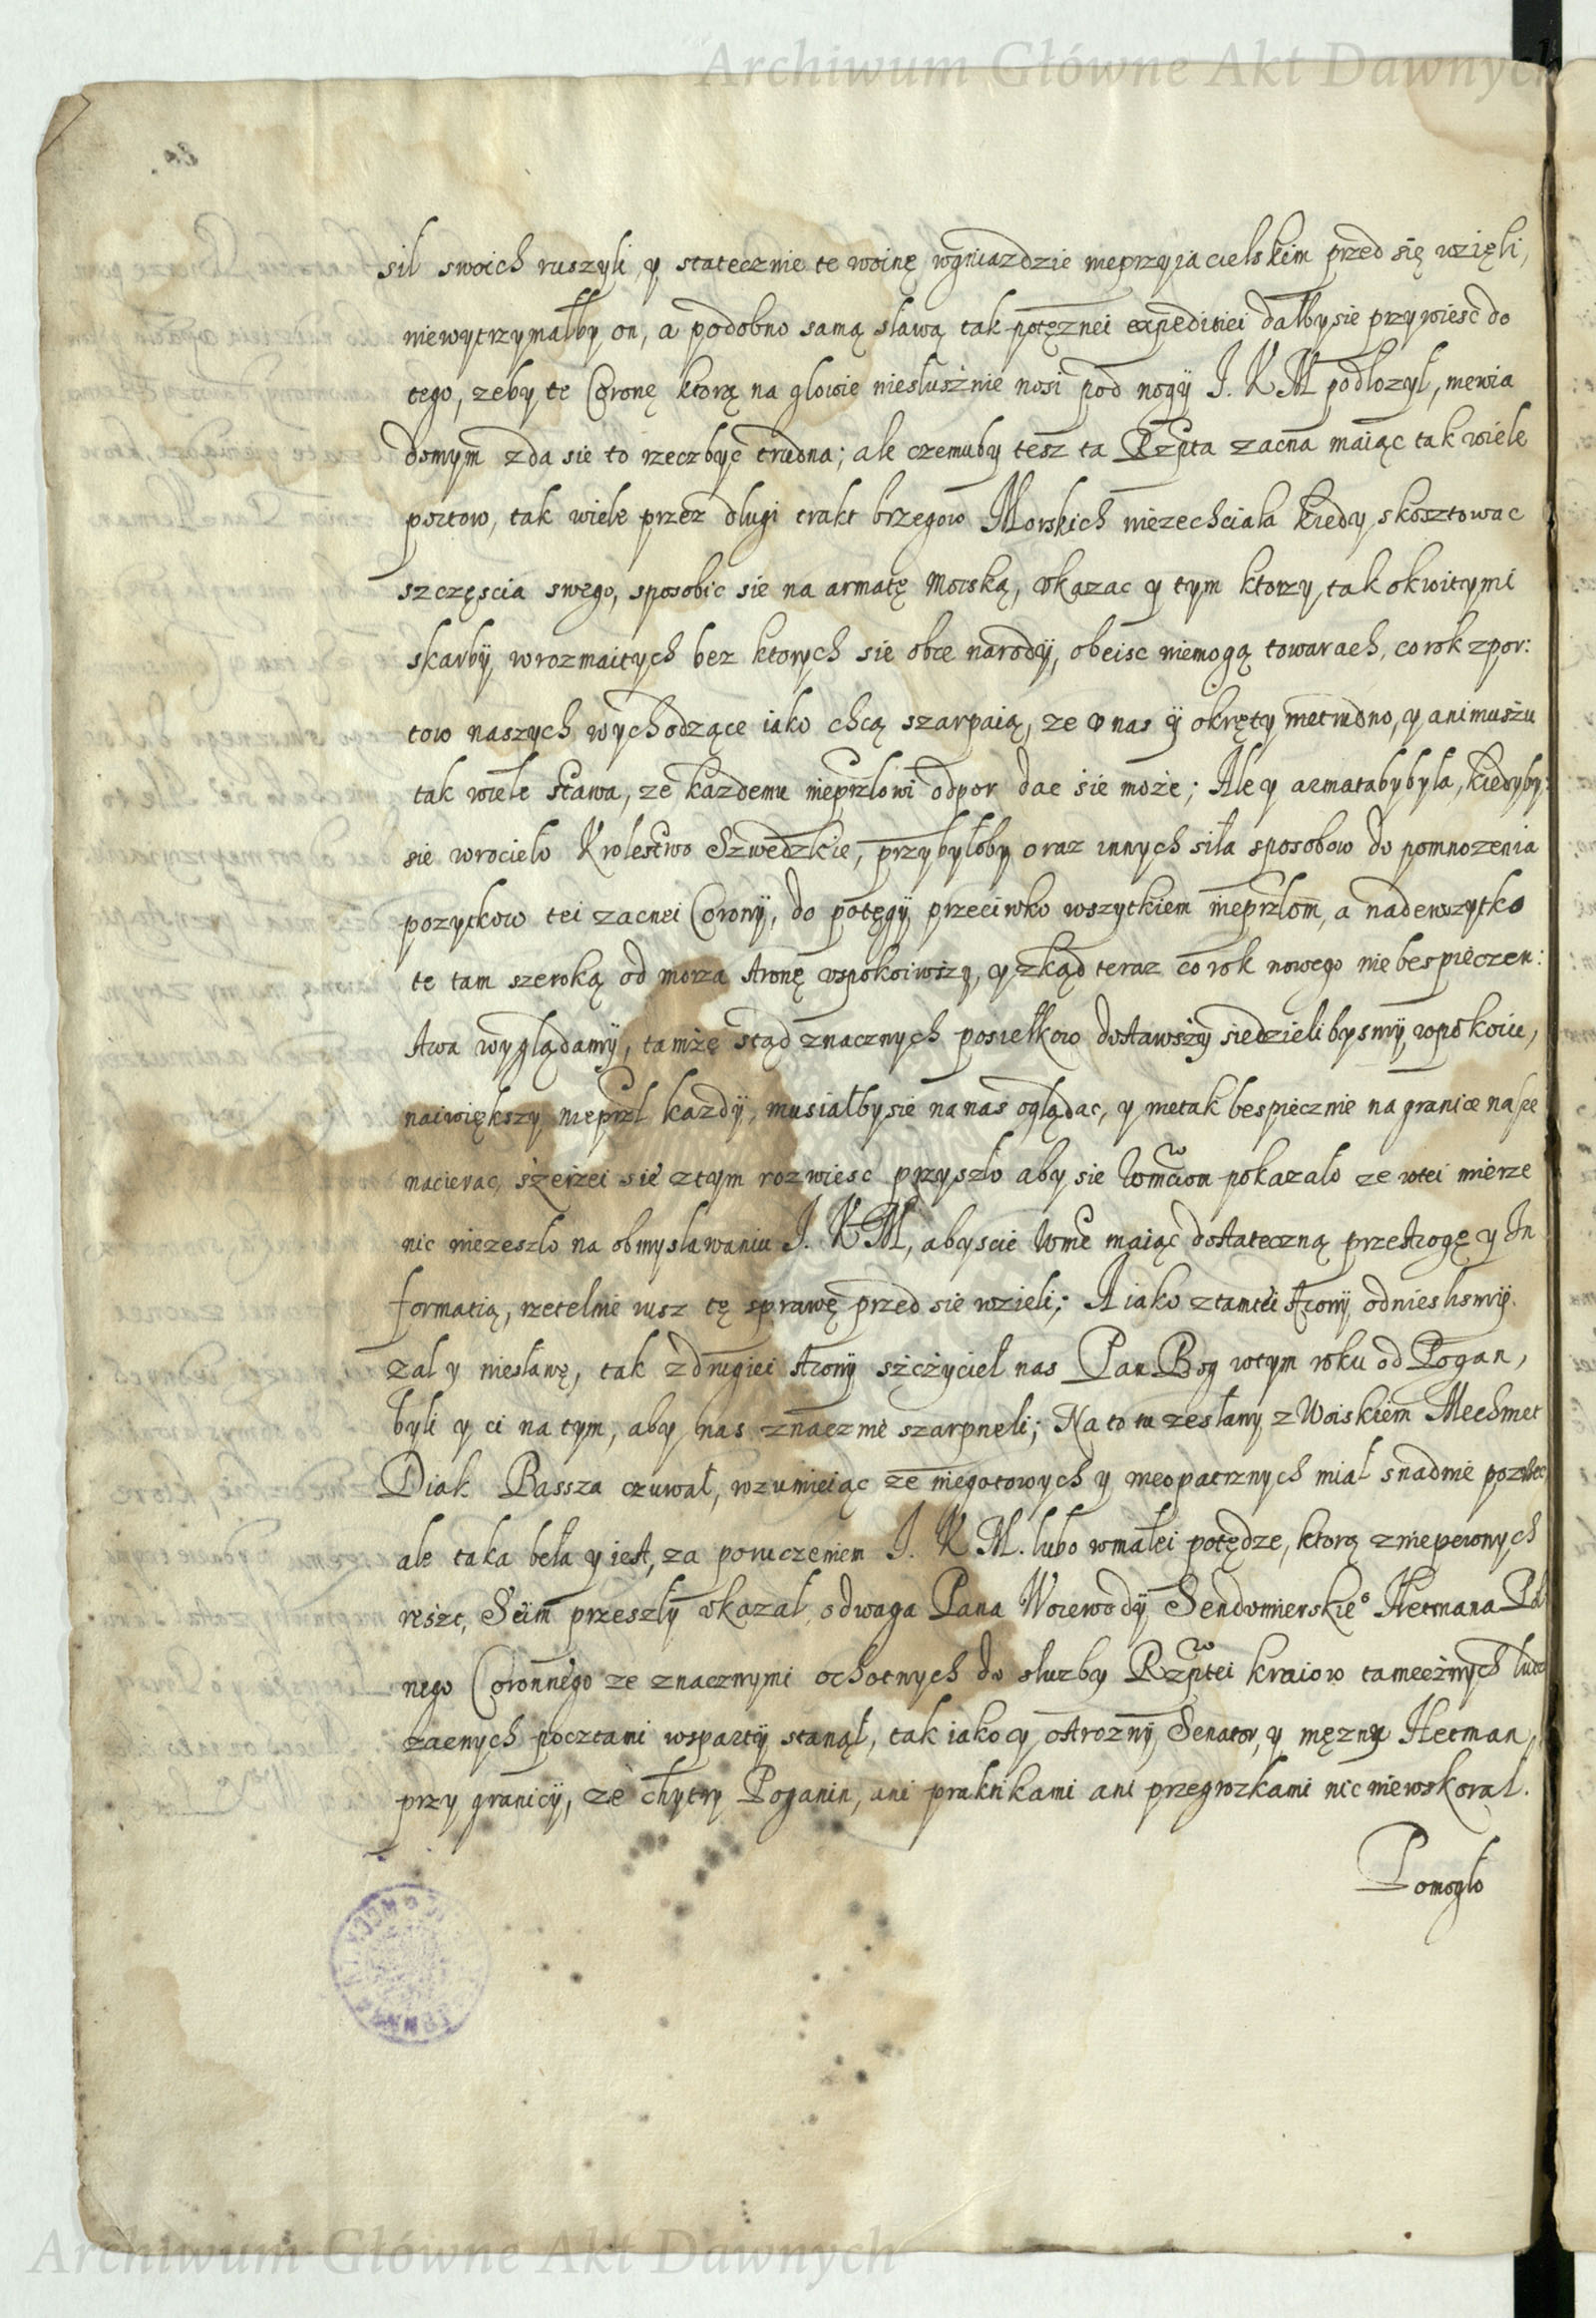 Archiwum Główne Akt Dawnych
sil swoich ruszyli, y statecznie te woinę wgniazdzie nieprzyiacielskim przed się wzięli,
niewytrzymałby on, a podobno samą sławą tak potęznei expeditiei dałby sie przywiesc do
tego, zeby te Coronę ktorą na głowie niesłusznie nosi pod nogÿ J. K M podłozył, niewia
domym zda sie to rzecz byc trudna; ale czemuby tesz ta Rzpta zacna maiąc tak wiele
portow, tak wiele przez długi trakt brzegow Morskich niezechciała kiedy skosztowac
szczęscia swego, sposobic sie na armatę morską, vkazac y tym ktorzy tak okwitymi
skarbÿ, wrozmaitych bez ktorych sie obce narodÿ, obeisc niemogą towarach, co rok zpor:
tow naszych wychodzące iako chcą szarpaią, ze v nas ÿ okręty nietrudno, y animuszu
tak wiele stawa, ze kazdemu nieprzlowi odpor dac sie może; Ale y armataby była, kiedyby
sie wrocieło Krolestwo Szwedzkie, przybyłoby oraz innych siła sposobow do pomnozenia
pozytkow tei zacnei CoronÿJ, do potęgÿ przeciwko wszytkiem nieprzlom, a nadewszytko
te tam szeroką od morza stronę vspokoiwszy, y zkąd teraz co rok nowego niebespieczen:
stwa wyglądamÿ, tamże stąd znacznych posiełkow dostawszÿ siedzielibysmÿ wpokoiu,
naiwiększy nieprzl kazdÿ, musiałby sie na nas oglądac, y nietak bespiecznie na granice nasze
nacierac, szerzei sie ztym rozwiesc przyszło aby sie Wmciom pokazało ze wtei mierze
nic niezeszło na obmyslawaniu J. K M, abyscie Wmc maiąc dostateczną przestrogę y In
formatią, rzetelnie wsz tę sprawę przed sie wzieli; A iako ztamtei stronÿ odnieslismÿ
zal y niesławę, tak z drugiei stronÿ szczyciel nas Pan Bog wtym roku od Pogan,
byli y ci na tym, aby nas znacznie szarpneli; Na to tu zesłany z Woiskiem Mechmet
Diak Bassza czuwał, rozumieiąc ze niegotowych y nieopatrznych miał snadnie
ale taka beła y iest, za poruczeniem J. K M. lubo wmałei potędze, ktorą zniepewnych
reszt, Seim przeszłÿ vkazał, odwaga Pana WoiewodÿSendomierskie° Hetmana Pol
nego Coronnego ze znacznymi ochotnych do służby Rzptei kraiow tamecznych ludzi
zacnych pocztami wspartÿ stanął, tak iako y ostroznÿ Senator, y męzny Hetman
przy granicÿ, ze chytry Poganin, ani praktikami ani przegrozkami nic niewskorał.
Pomogło
Archiwum Główne Akt Dawnych